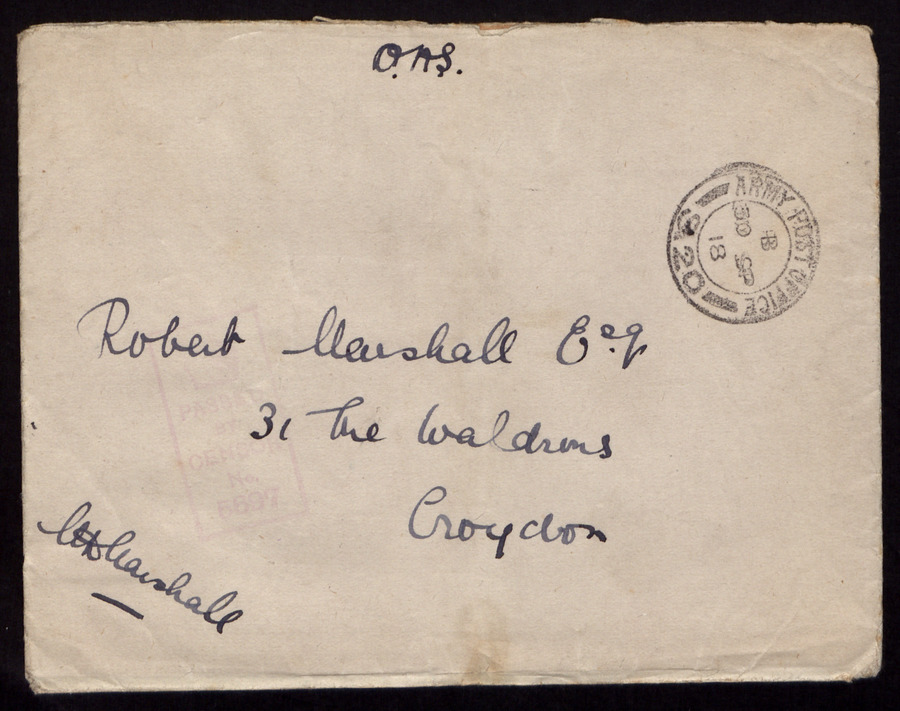 O.A.S.
ARMY POST OFFICE
B
30 SP
18
S 20
Robert Marshall Esq
31 The Waldrons
Croydon
PASSED
BY
CENSOR
No.
Marshall